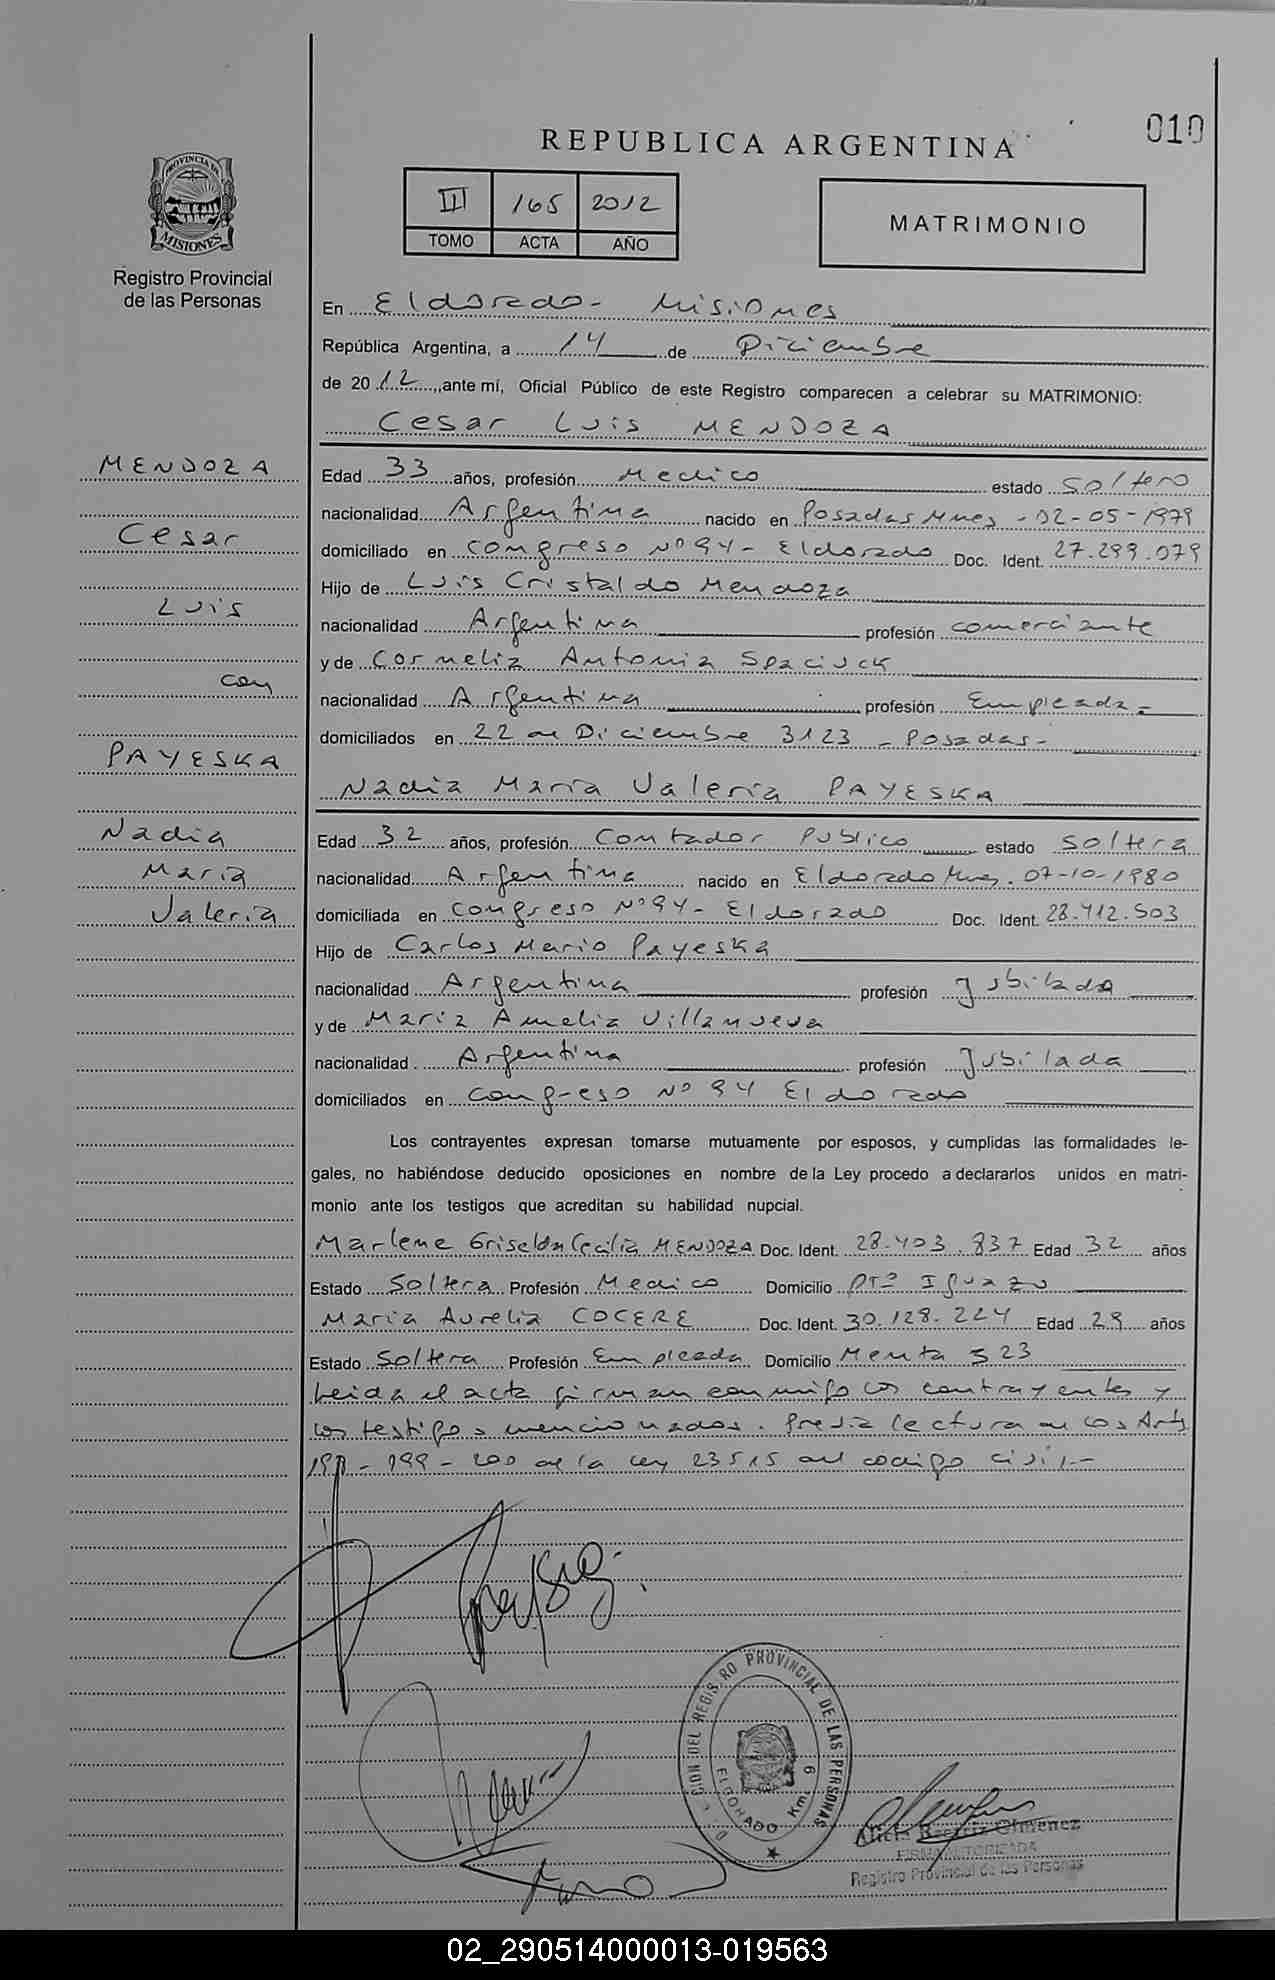 010
REPUBLICA ARGENTINA
PROVINCIA DE MISIONES
Registro Provincial
de las Personas
III 165 2012
TOMO ACTA AÑO
MATRIMONIO
En Eldorado - Misiones
República Argentina, a 14 de Diciembre
de 2012, ante mí, Oficial Público de este Registro comparecen a celebrar su MATRIMONIO:
Cesar Luis MENDOZA
MENDOZA
Cesar
Luis
con
PAYESKA
Nadia
María
Valeria
Edad 33 años, profesión Medico estado Soltero
nacionalidad Argentina nacido en Posadas Mnes - 02-05-1979
domiciliado en Congreso Nº 94 - Eldorado Doc. Ident. 27.299.079
Hijo de Luis Cristaldo Mendoza
nacionalidad Argentina profesión comerciante
y de Cornelia Antonia Spaciuck
nacionalidad Argentina profesión Empleada -
domiciliados en 22 de Diciembre 3123 - Posadas -
Nadia María Valeria PAYESKA
Edad 32 años, profesión Contador Publico estado Soltera
nacionalidad Argentina nacido en Eldorado Mnes. 07-10-1980
domiciliada en Congreso Nº 94 - Eldorado Doc. Ident. 28.412.503
Hijo de Carlos Mario Payeska
nacionalidad Argentina profesión Jubilado
y de Maria Amelia Villanueva
nacionalidad Argentina profesión Jubilada
domiciliados en Congreso Nº 94 Eldorado
Los contrayentes expresan tomarse mutuamente por esposos, y cumplidas las formalidades le-
gales, no habiéndose deducido oposiciones en nombre de la Ley procedo a declararlos unidos en matri-
monio ante los testigos que acreditan su habilidad nupcial.
Marlene Griselda Cecilia MENDOZA Doc. Ident. 28.403.837 Edad 32 años
Estado Soltera Profesión Medico Domicilio Pto Iguazu
Maria Aurelia COCERE Doc. Ident. 30.128.224 Edad 29 años
Estado Soltera Profesión Empleada Domicilio Menta 323
Leida el acta firman conmigo los contrayentes y
los testigos mencionados. Previa lectura de los Arts
198 - 199 - 200 de la Ley 23515 del codigo civil.-
DIRECCION DEL REGISTRO PROVINCIAL DE LAS PERSONAS
ELDORADO Km. 9
Alicia Beatriz Gimenez
FIRMA AUTORIZADA
Registro Provincial de las Personas
02_290514000013-019563